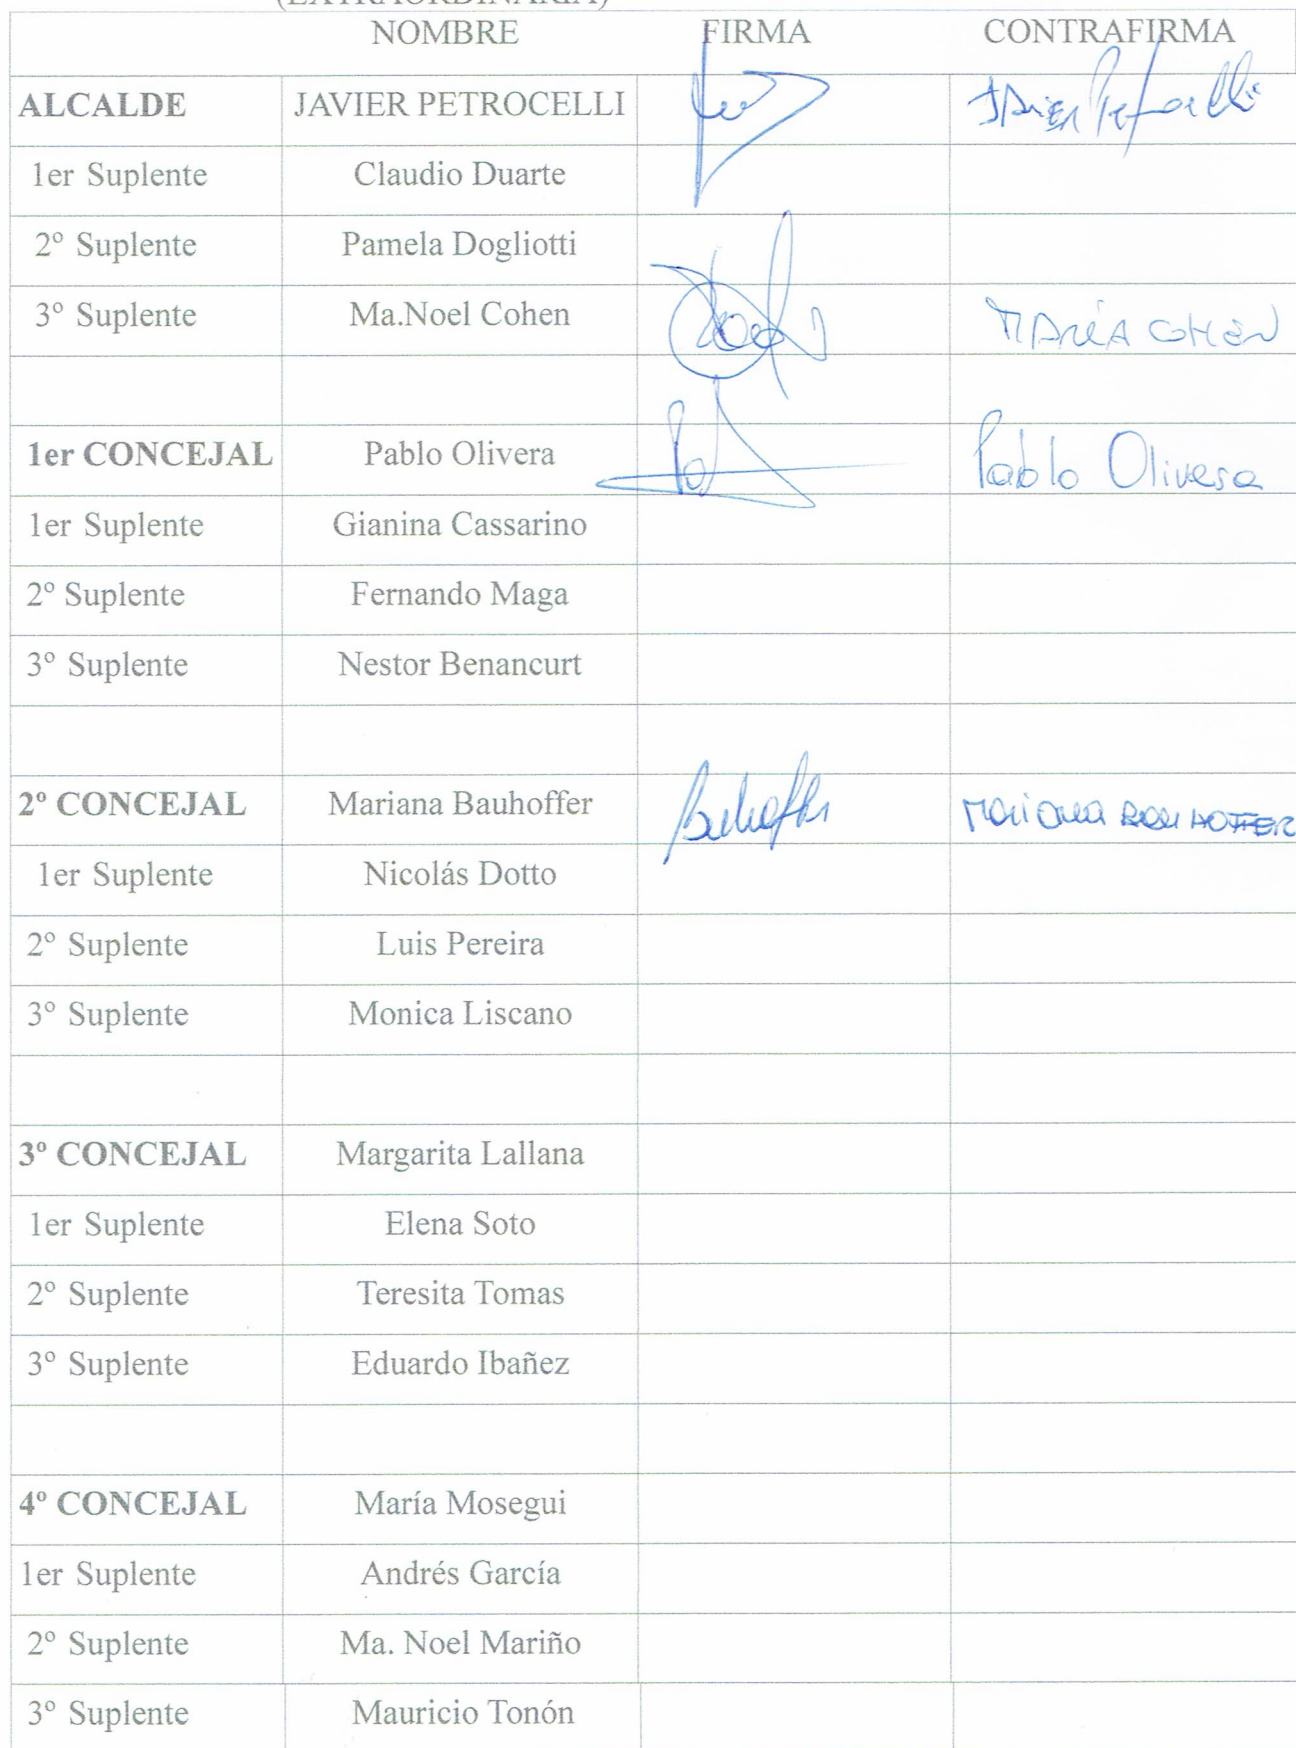 (EXTRAORDINARIA)
NOMBRE FIRMA CONTRAFIRMA
ALCALDE JAVIER PETROCELLI Javier Petrocelli
1er Suplente Claudio Duarte
2º Suplente Pamela Dogliotti
3º Suplente Ma.Noel Cohen MARÍA COHEN
1er CONCEJAL Pablo Olivera Pablo Olivera
1er Suplente Gianina Cassarino
2º Suplente Fernando Maga
3º Suplente Nestor Benancurt
2º CONCEJAL Mariana Bauhoffer Mariana BAUHOFFER
1er Suplente Nicolás Dotto
2º Suplente Luis Pereira
3º Suplente Monica Liscano
3º CONCEJAL Margarita Lallana
1er Suplente Elena Soto
2º Suplente Teresita Tomas
3º Suplente Eduardo Ibañez
4º CONCEJAL María Mosegui
1er Suplente Andrés García
2º Suplente Ma. Noel Mariño
3º Suplente Mauricio Tonón